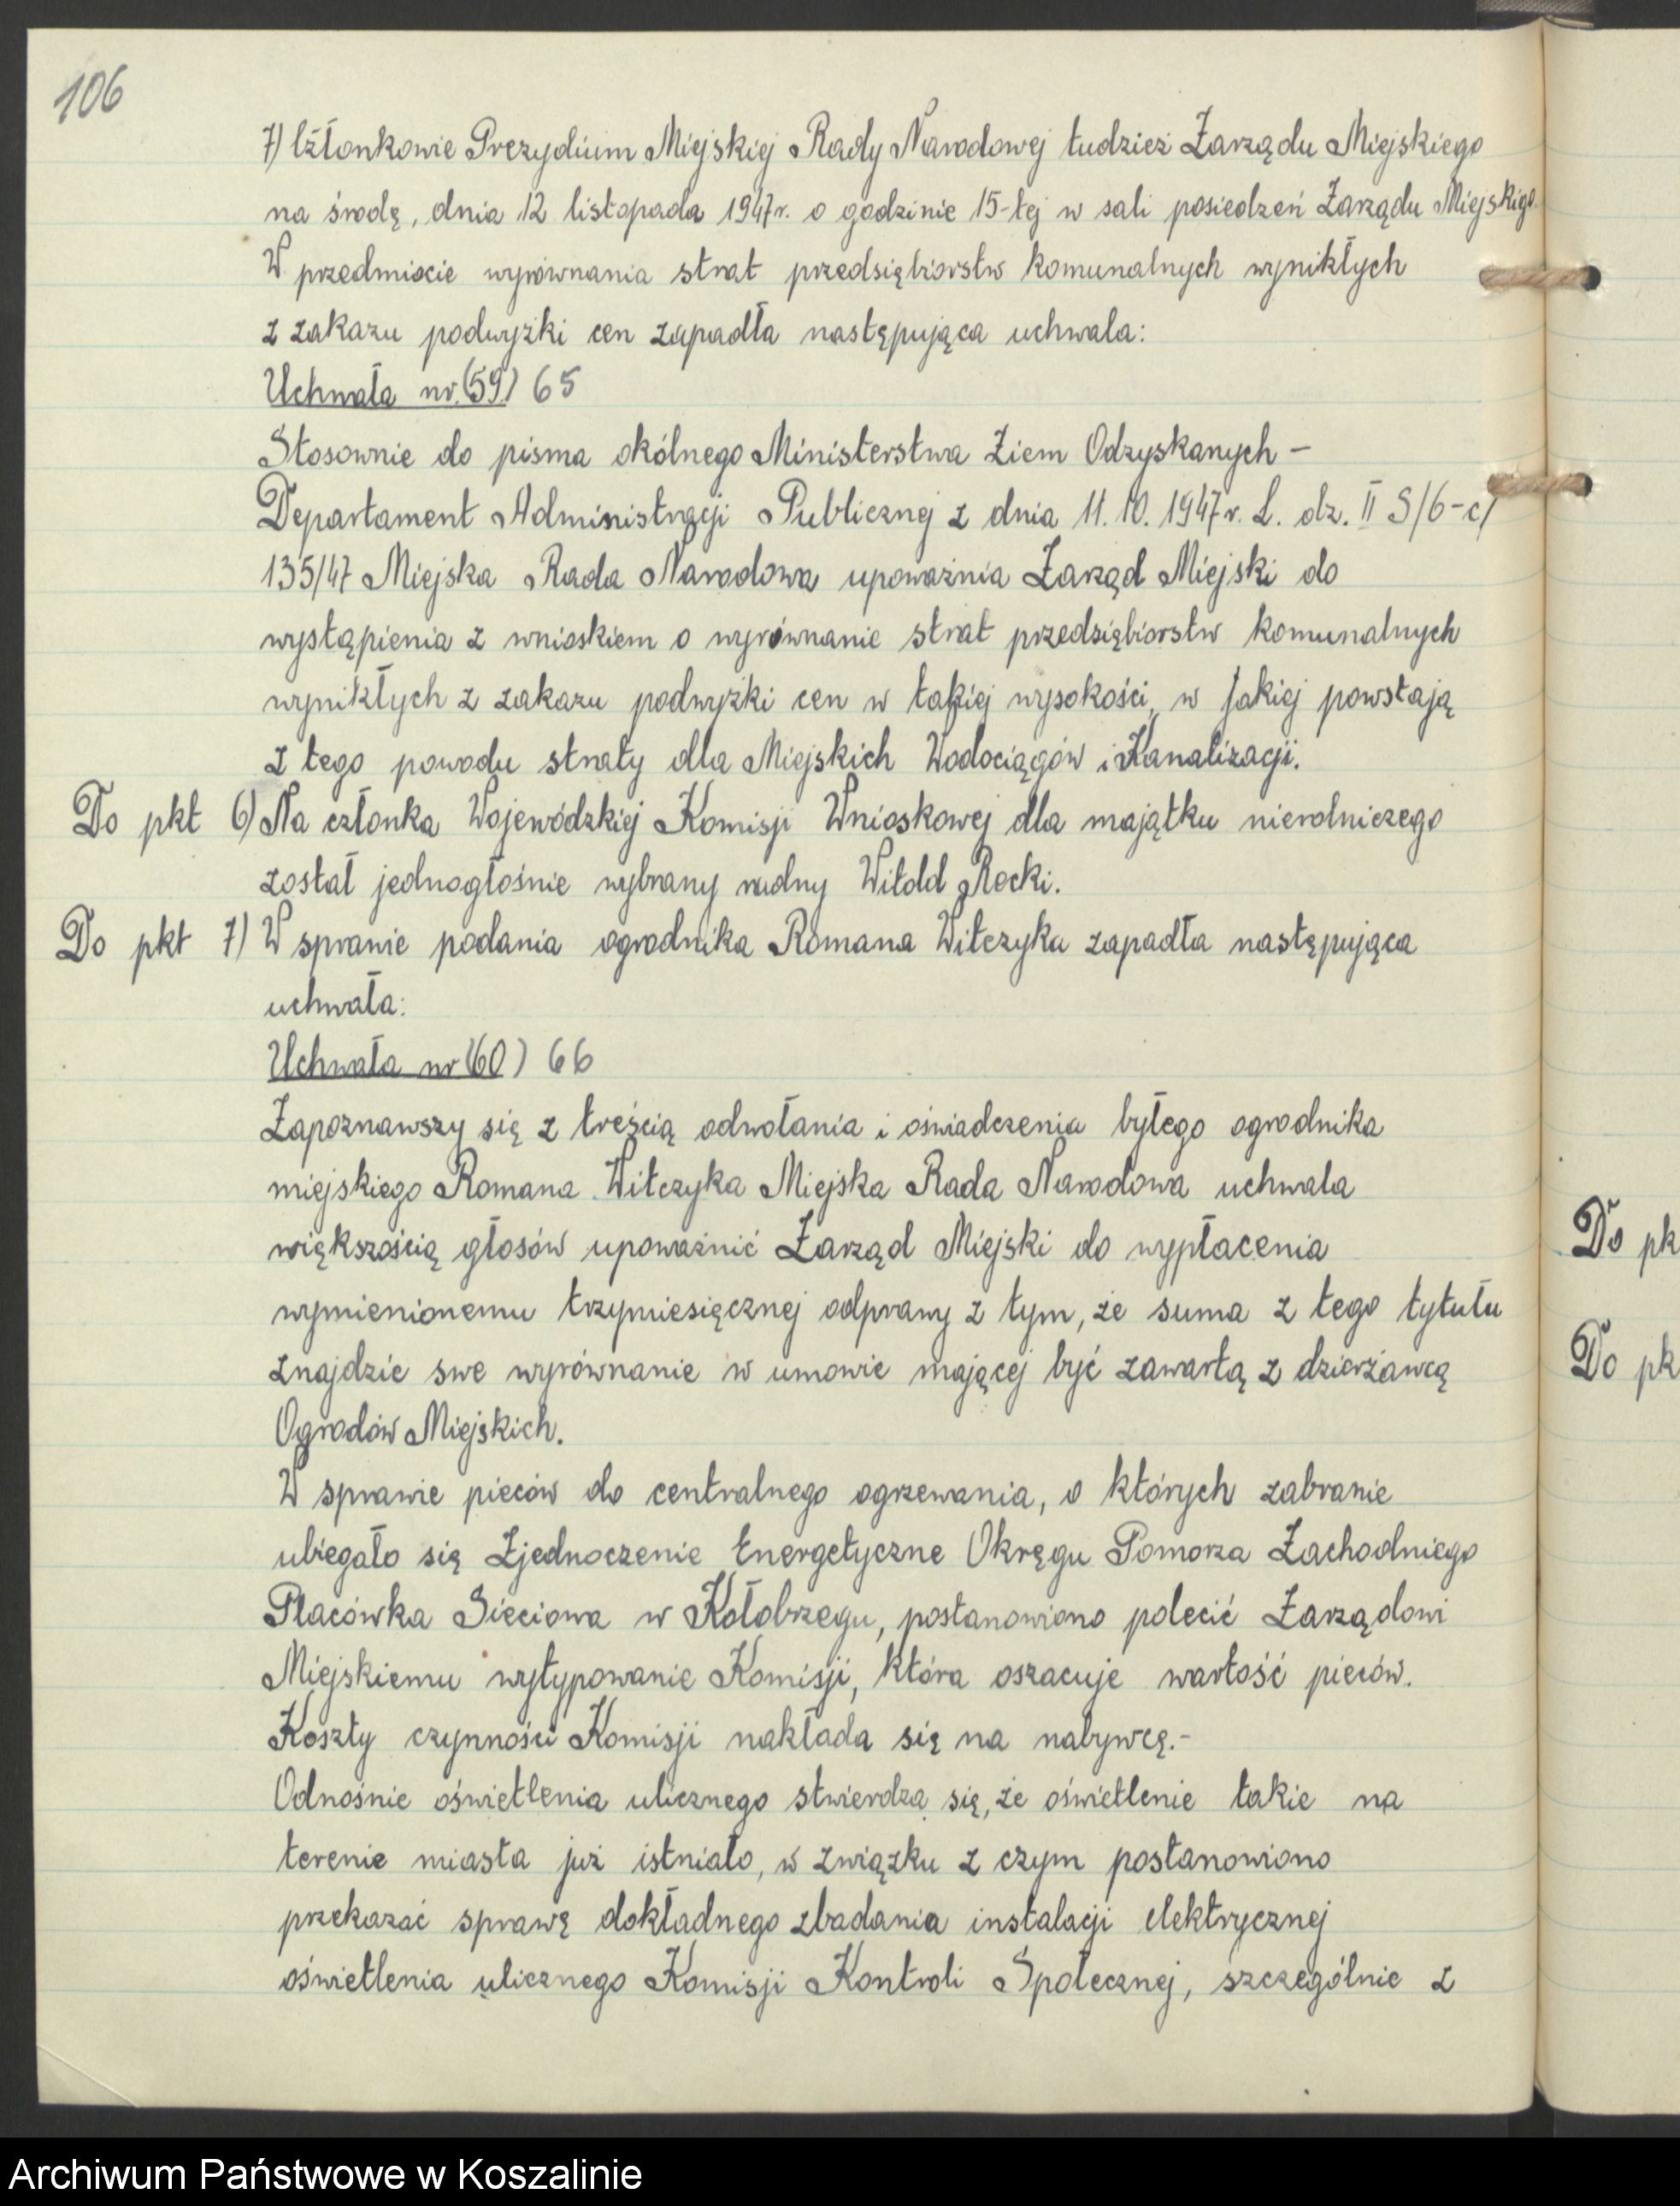 106
7) Członkowie Prezydium Miejskiej Rady Narodowej tudzież Zarządu Miejskiego
na środę, dnia 12 listopada 1947 r. o godzinie 15-tej w sali posiedzeń Zarządu Miejskigo.
W przedmiocie wyrównania strat przedsiębiorstw komunalnych wynikłych
z zakazu podwyżki cen zapadła następująca uchwała:
Uchwała nr. (59) 65
Stosownie do pisma okólnego Ministerstwa Ziem Odzyskanych –
Departament Administracji Publicznej z dnia 11.10.1947 r. L. dz. II S/6-c/
135/47 Miejska Rada Narodowa upoważnia Zarząd Miejski do
wystąpienia z wnioskiem o wyrównanie strat przedsiębiorstw komunalnych
wynikłych z zakazu podwyżki cen w takiej wysokości, w jakiej powstają
z tego powodu straty dla Miejskich Wodociągów i Kanalizacji.
Do pkt 6) Na członka Wojewódzkiej Komisji Wnioskowej dla majątku nierolniczego
został jednogłośnie wybrany radny Witold Rocki.
Do pkt 7) W sprawie podania ogrodnika Romana Witczyka zapadła następująca
uchwała:
Uchwała nr (60) 66
Zapoznawszy się z treścią odwołania i oświadczenia byłego ogrodnika
miejskiego Romana Witczyka Miejska Rada Narodowa uchwala
większością głosów upoważnić Zarząd Miejski do wypłacenia
wymienionemu trzymiesięcznej odprawy z tym, że suma z tego tytułu
znajdzie swe wyrównanie w umowie mającej być zawartą z dzierżawcą
Ogrodów Miejskich.
W sprawie pieców do centralnego ogrzewania, o których zabranie
ubiegało się Zjednoczenie Energetyczne Okręgu Pomorza Zachodniego
Placówka Sieciowa w Kołobrzegu, postanowiono polecić Zarządowi
Miejskiemu wytypowanie Komisji, która oszacuje wartość pieców.
Koszty czynności Komisji nakłada się na nabywcę.-
Odnośnie oświetlenia ulicznego stwierdza się, że oświetlenie takie na
terenie miasta już istniało, w związku z czym postanowiono
przekazać sprawę dokładnego zbadania instalacji elektrycznej
oświetlenia ulicznego Komisji Kontroli Społecznej, szczególnie z
Do pk
Do pk
Archiwum Państwowe w Koszalinie